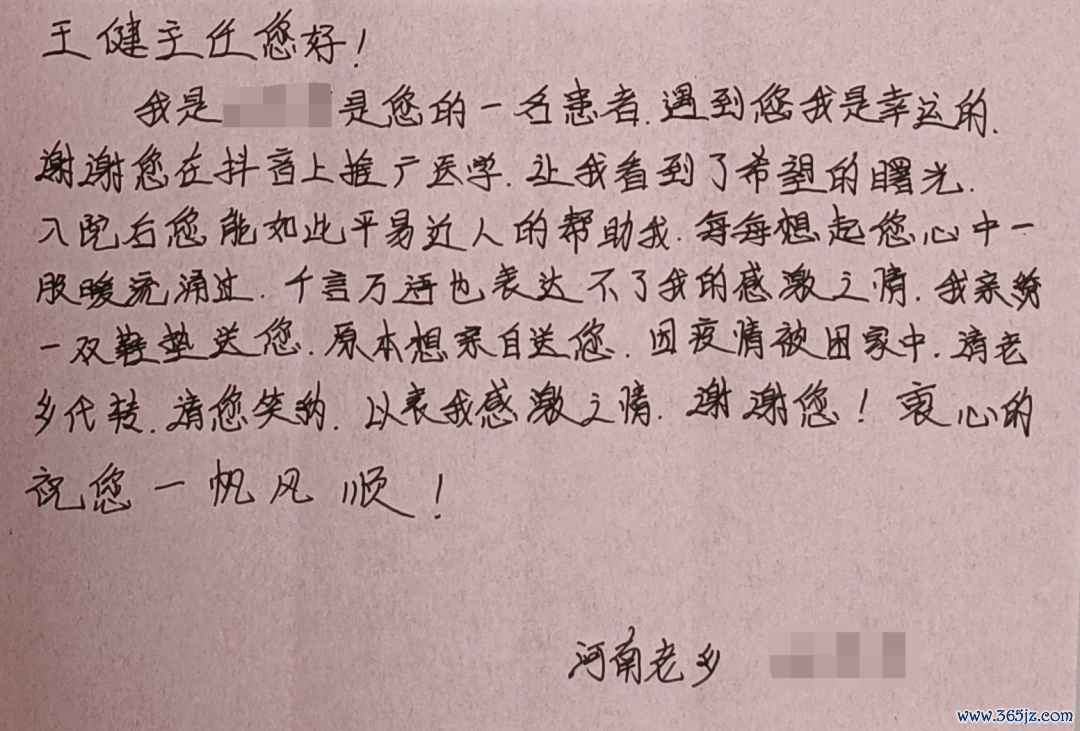 王健主任您好!
我是 是您的一名患者.遇到您我是幸运的.
谢谢您在抖音上推广医学.让我看到了希望的曙光.
入院后您能如此平易近人的帮助我.每每想起您心中一
股暖流涌过.千言万语也表达不了我的感激之情.我亲纷
一双鞋垫送您.原本想亲自送您.因疫情被困家中.请老
乡代转.请您笑纳.以表我感激之情.谢谢您!衷心的
祝您一帆风顺!
河南老乡
www.365jz.com